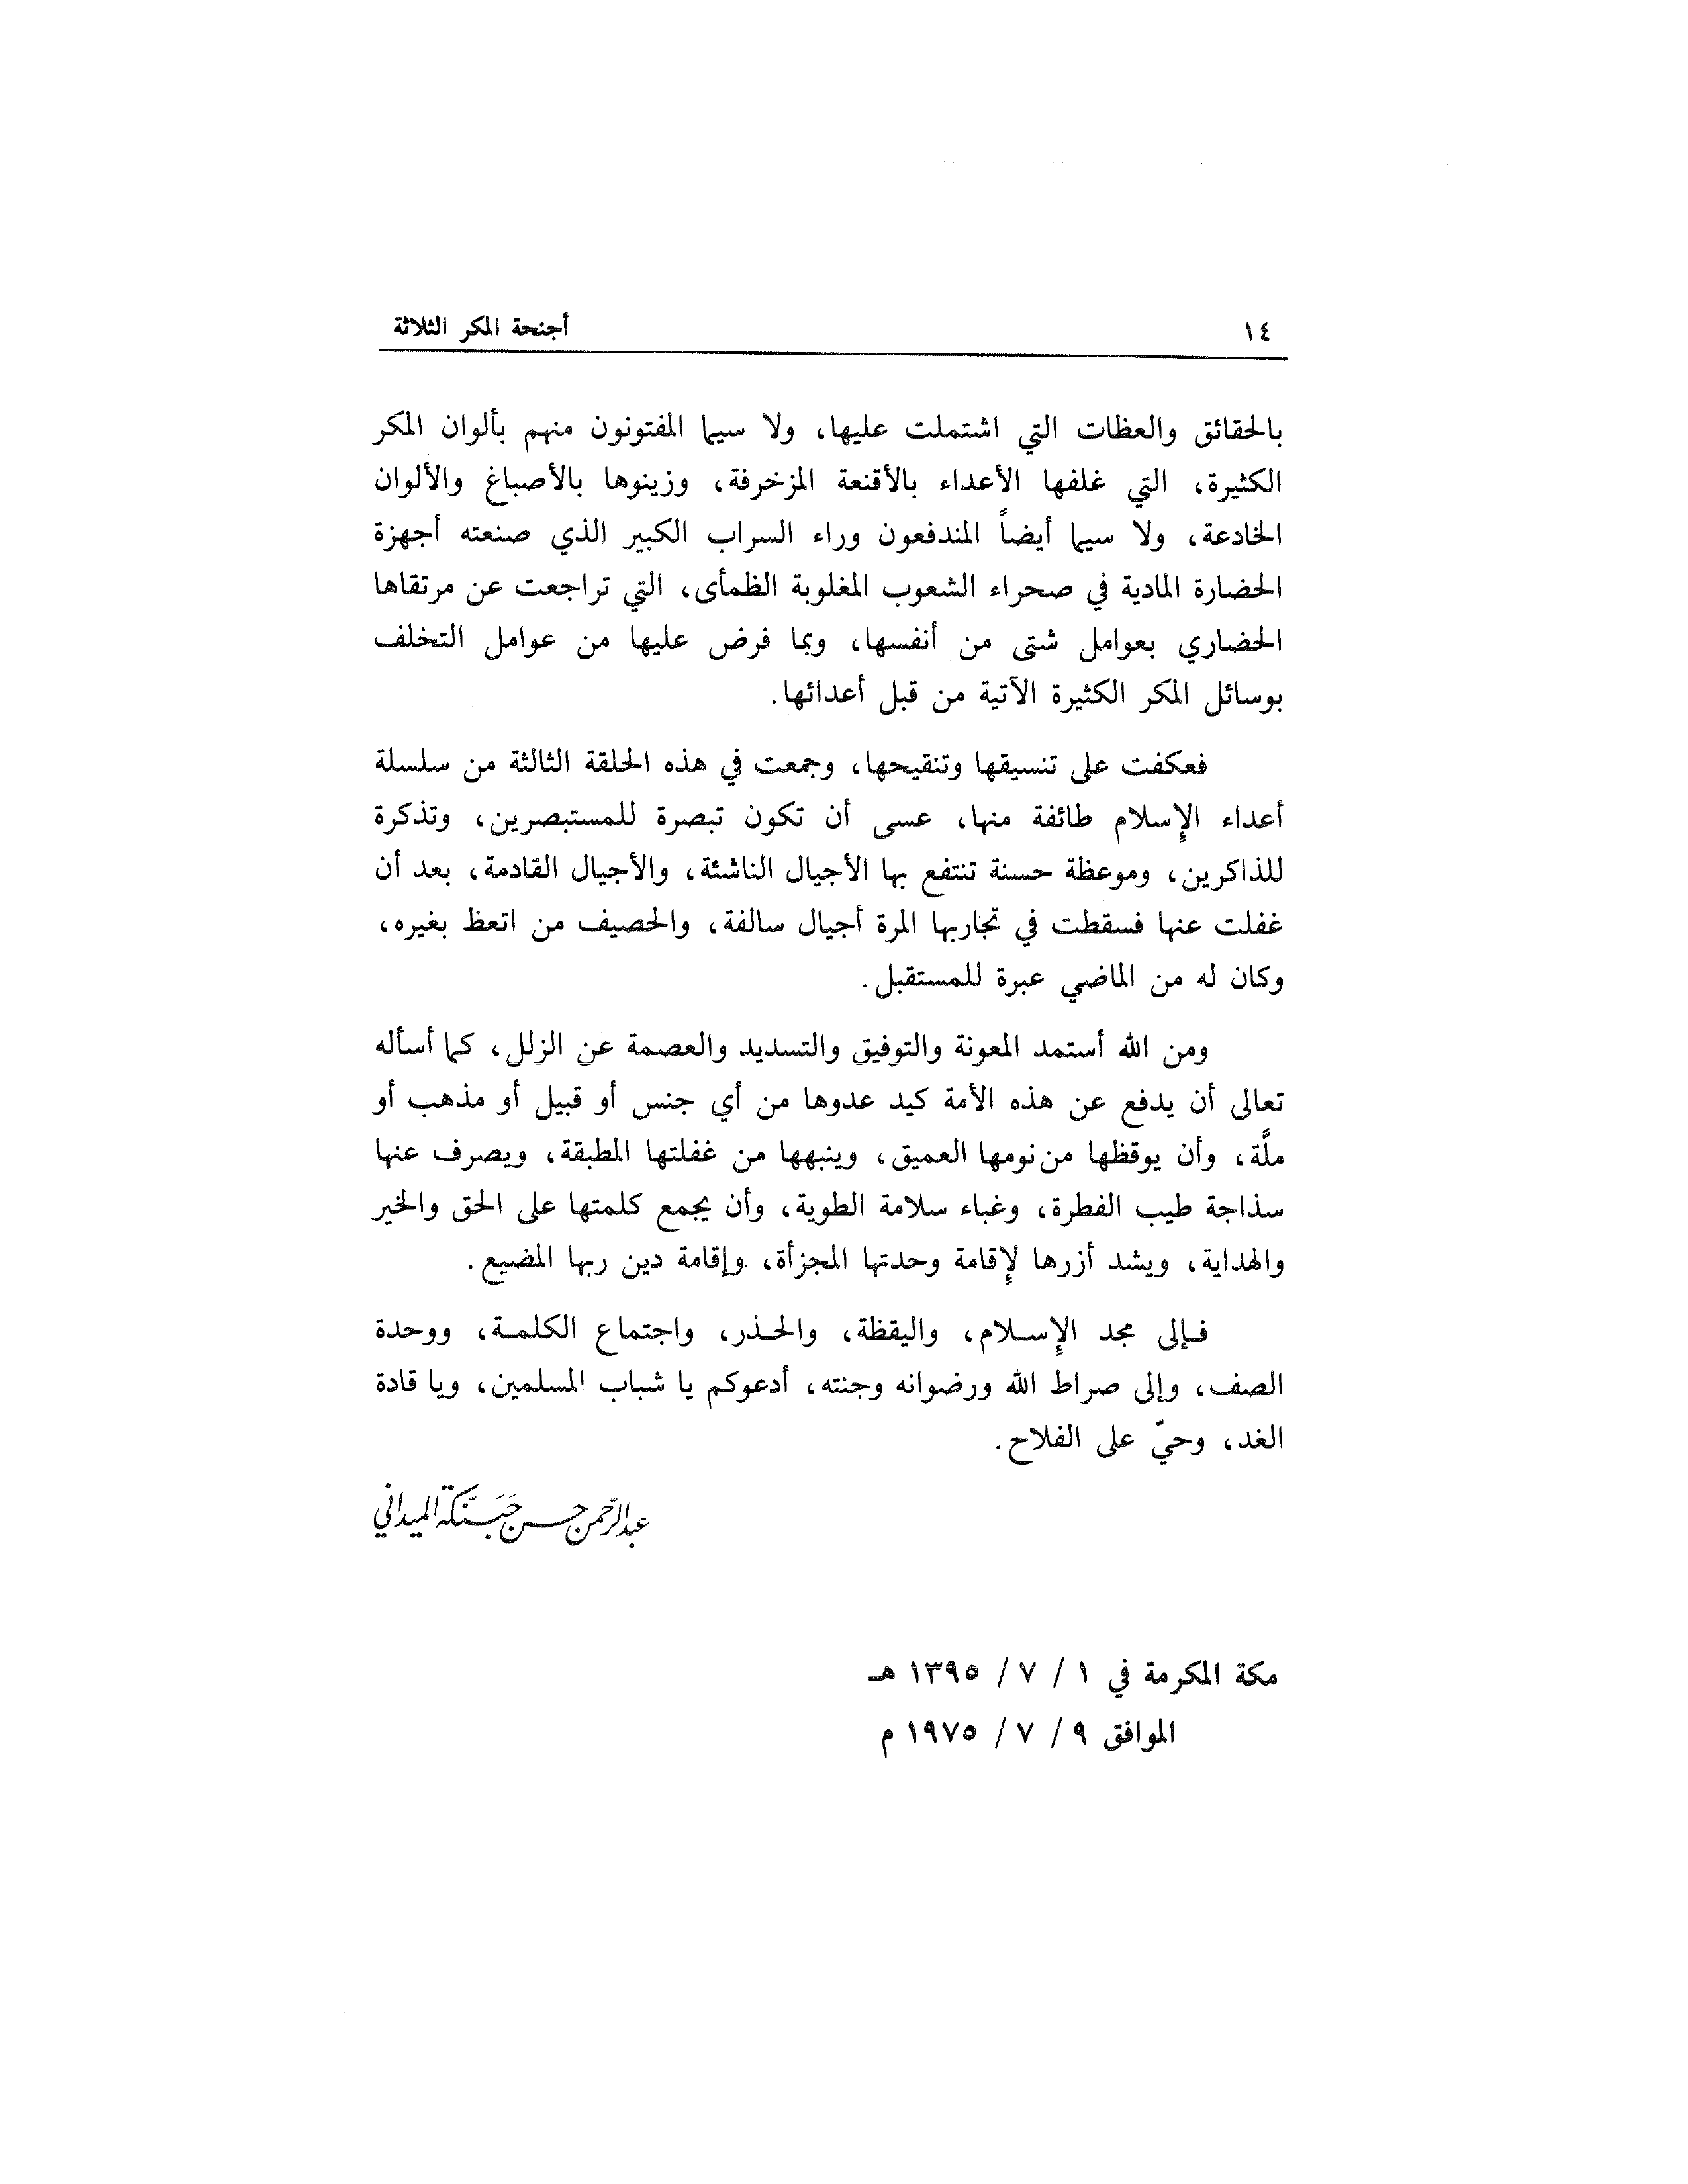 ١٤
أجنحة المكر الثلاثة
بالحقائق والعظات التي اشتملت عليها، ولا سيما المفتونون منهم بألوان المكر
الكثيرة، التي غلفها الأعداء بالأقنعة المزخرفة، وزينوها بالأصباغ والألوان
الخادعة، ولا سيما أيضاً المندفعون وراء السراب الكبير الذي صنعته أجهزة
الحضارة المادية في صحراء الشعوب المغلوبة الظمأى، التي تراجعت عن مرتقاها
الحضاري بعوامل شتى من أنفسها، وبما فرض عليها من عوامل التخلف
بوسائل المكر الكثيرة الآتية من قبل أعدائها.
فعكفت على تنسيقها وتنقيحها، وجمعت في هذه الحلقة الثالثة من سلسلة
أعداء الإسلام طائفة منها، عسى أن تكون تبصرة للمستبصرين، وتذكرة
للذاكرين، وموعظة حسنة تنتفع بها الأجيال الناشئة، والأجيال القادمة، بعد أن
غفلت عنها فسقطت في تجاربها المرة أجيال سالفة، والحصيف من اتعظ بغيره،
وكان له من الماضي عبرة للمستقبل.
ومن الله أستمد المعونة والتوفيق والتسديد والعصمة عن الزلل، كما أسأله
تعالى أن يدفع عن هذه الأمة كيد عدوها من أي جنس أو قبيل أو مذهب أو
ملَّة، وأن يوقظها من نومها العميق، وينبهها من غفلتها المطبقة، ويصرف عنها
سذاجة طيب الفطرة، وغباء سلامة الطوية، وأن يجمع كلمتها على الحق والخير
والهداية، ويشد أزرها لإقامة وحدتها المجزأة، وإقامة دين ربها المضيع.
فإلى مجد الإسلام، واليقظة، والحذر، واجتماع الكلمة، ووحدة
الصف، وإلى صراط الله ورضوانه وجنته، أدعوكم يا شباب المسلمين، ويا قادة
الغد، وحيّ على الفلاح.
عبد الرّحمن حسن حَبَنَّكة الميداني
مكة المكرمة في ١ / ٧ / ١٣٩٥ هـ
الموافق ٩ / ٧ / ١٩٧٥ م